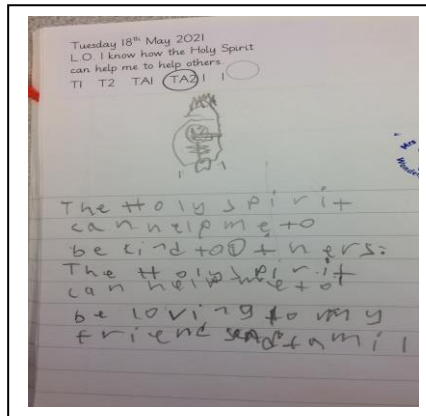 Tuesday 18th May 2021
L.O. I know how the Holy Spirit
can help me to help others.
T1 T2 TA1 TA2 I I
Mrs
Wonde
The Holy spirit
can help me to
be kind to others.
The Holy spirit
can help me to
be loving to my
friend sand famil